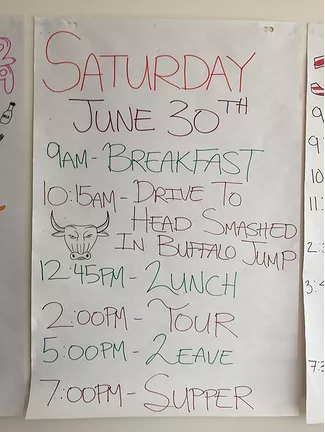 SATURDAY
JUNE 30TH
9AM- BREAKFAST
10:15AM- DRIVE TO
HEAD SMASHED
IN BUFFALO JUMP
12:45PM- LUNCH
2:00PM- TOUR
5:00PM- LEAVE
7:00PM- SUPPER